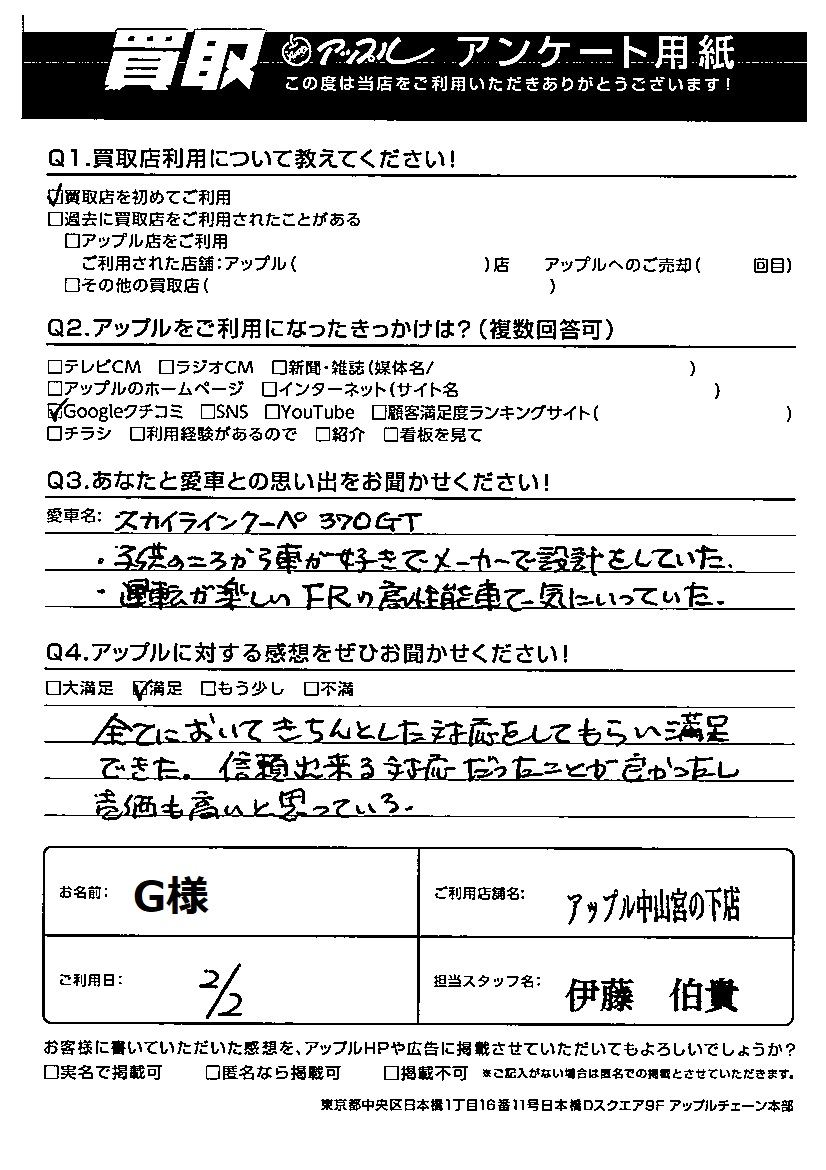 買取 アップル アンケート用紙
この度は当店をご利用いただきありがとうございます!
Q1.買取店利用について教えてください!
☑買取店を初めてご利用
□過去に買取店をご利用されたことがある
□アップル店をご利用
ご利用された店舗:アップル( )店 アップルへのご売却( 回目)
□その他の買取店( )
Q2.アップルをご利用になったきっかけは?(複数回答可)
□テレビCM □ラジオCM □新聞・雑誌(媒体名/ )
□アップルのホームページ □インターネット(サイト名 )
☑Googleクチコミ □SNS □YouTube □顧客満足度ランキングサイト( )
□チラシ □利用経験があるので □紹介 □看板を見て
Q3.あなたと愛車との思い出をお聞かせください!
愛車名: スカイラインクーペ 370GT
・子供のころから車が好きでメーカーで設計をしていた。
・運転が楽しいFRの高性能車で気にいっていた。
Q4.アップルに対する感想をぜひお聞かせください!
□大満足 ☑満足 □もう少し □不満
全てにおいてきちんとした対応をしてもらい満足
できた。信頼出来る対応だったことが良かったし
売価も高いと思っている。
お名前: G様 ご利用店舗名: アップル中山宮の下店
ご利用日: 2/2 担当スタッフ名: 伊藤 伯貴
お客様に書いていただいた感想を、アップルHPや広告に掲載させていただいてもよろしいでしょうか?
□実名で掲載可 □匿名なら掲載可 □掲載不可 ※ご記入がない場合は匿名での掲載とさせていただきます。
東京都中央区日本橋1丁目16番11号日本橋Dスクエア9F アップルチェーン本部